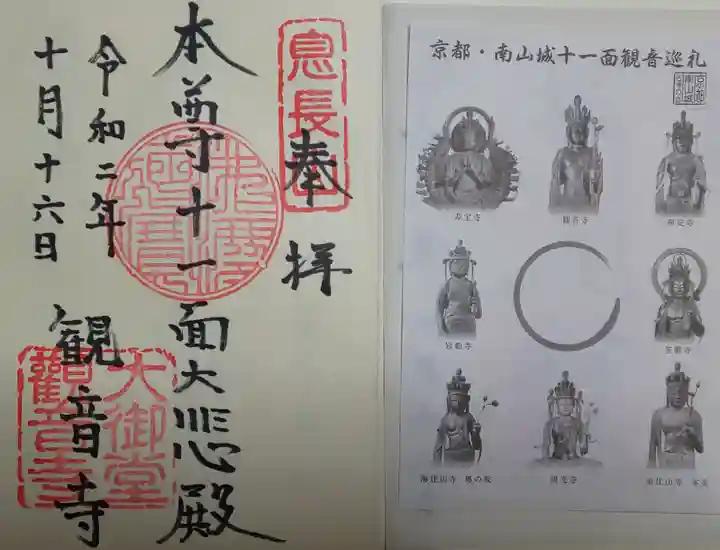 奉拝
息長山
本尊十一面大悲殿
令和二年
十月十六日
観音寺
大御堂
觀音寺
京都・南山城十一面観音巡礼
寿宝寺
観音寺
禅定寺
現光寺
海住山寺 奥の院
海住山寺 本堂